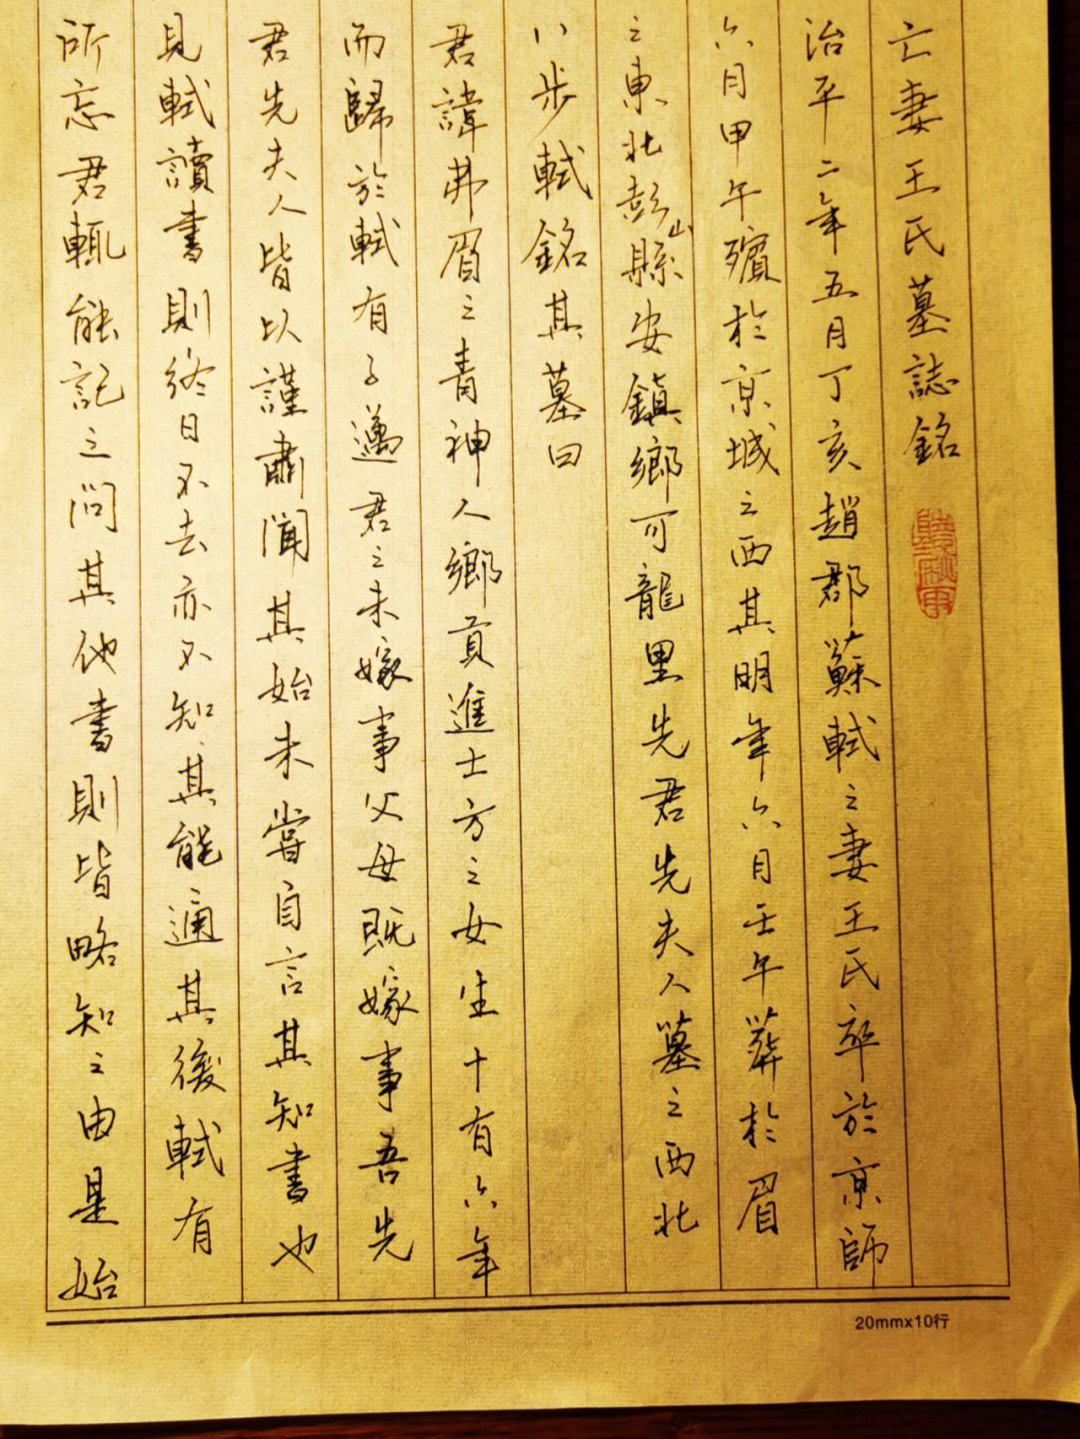 亡妻王氏墓誌銘
治平二年五月丁亥趙郡蘇軾之妻王氏卒於京師
六月甲午殯於京城之西其明年六月壬午葬於眉
之東北彭山縣安鎮鄉可龍里先君先夫人墓之西北
八步軾銘其墓曰
君諱弗眉之青神人鄉貢進士方之女生十有六年
而歸於軾有子邁君之未嫁事父母既嫁事吾先
君先夫人皆以謹肅聞其始未嘗自言其知書也
見軾讀書則終日不去亦不知其能通其後軾有
所忘君輒能記之問其他書則皆略知之由是始
20mmx10行